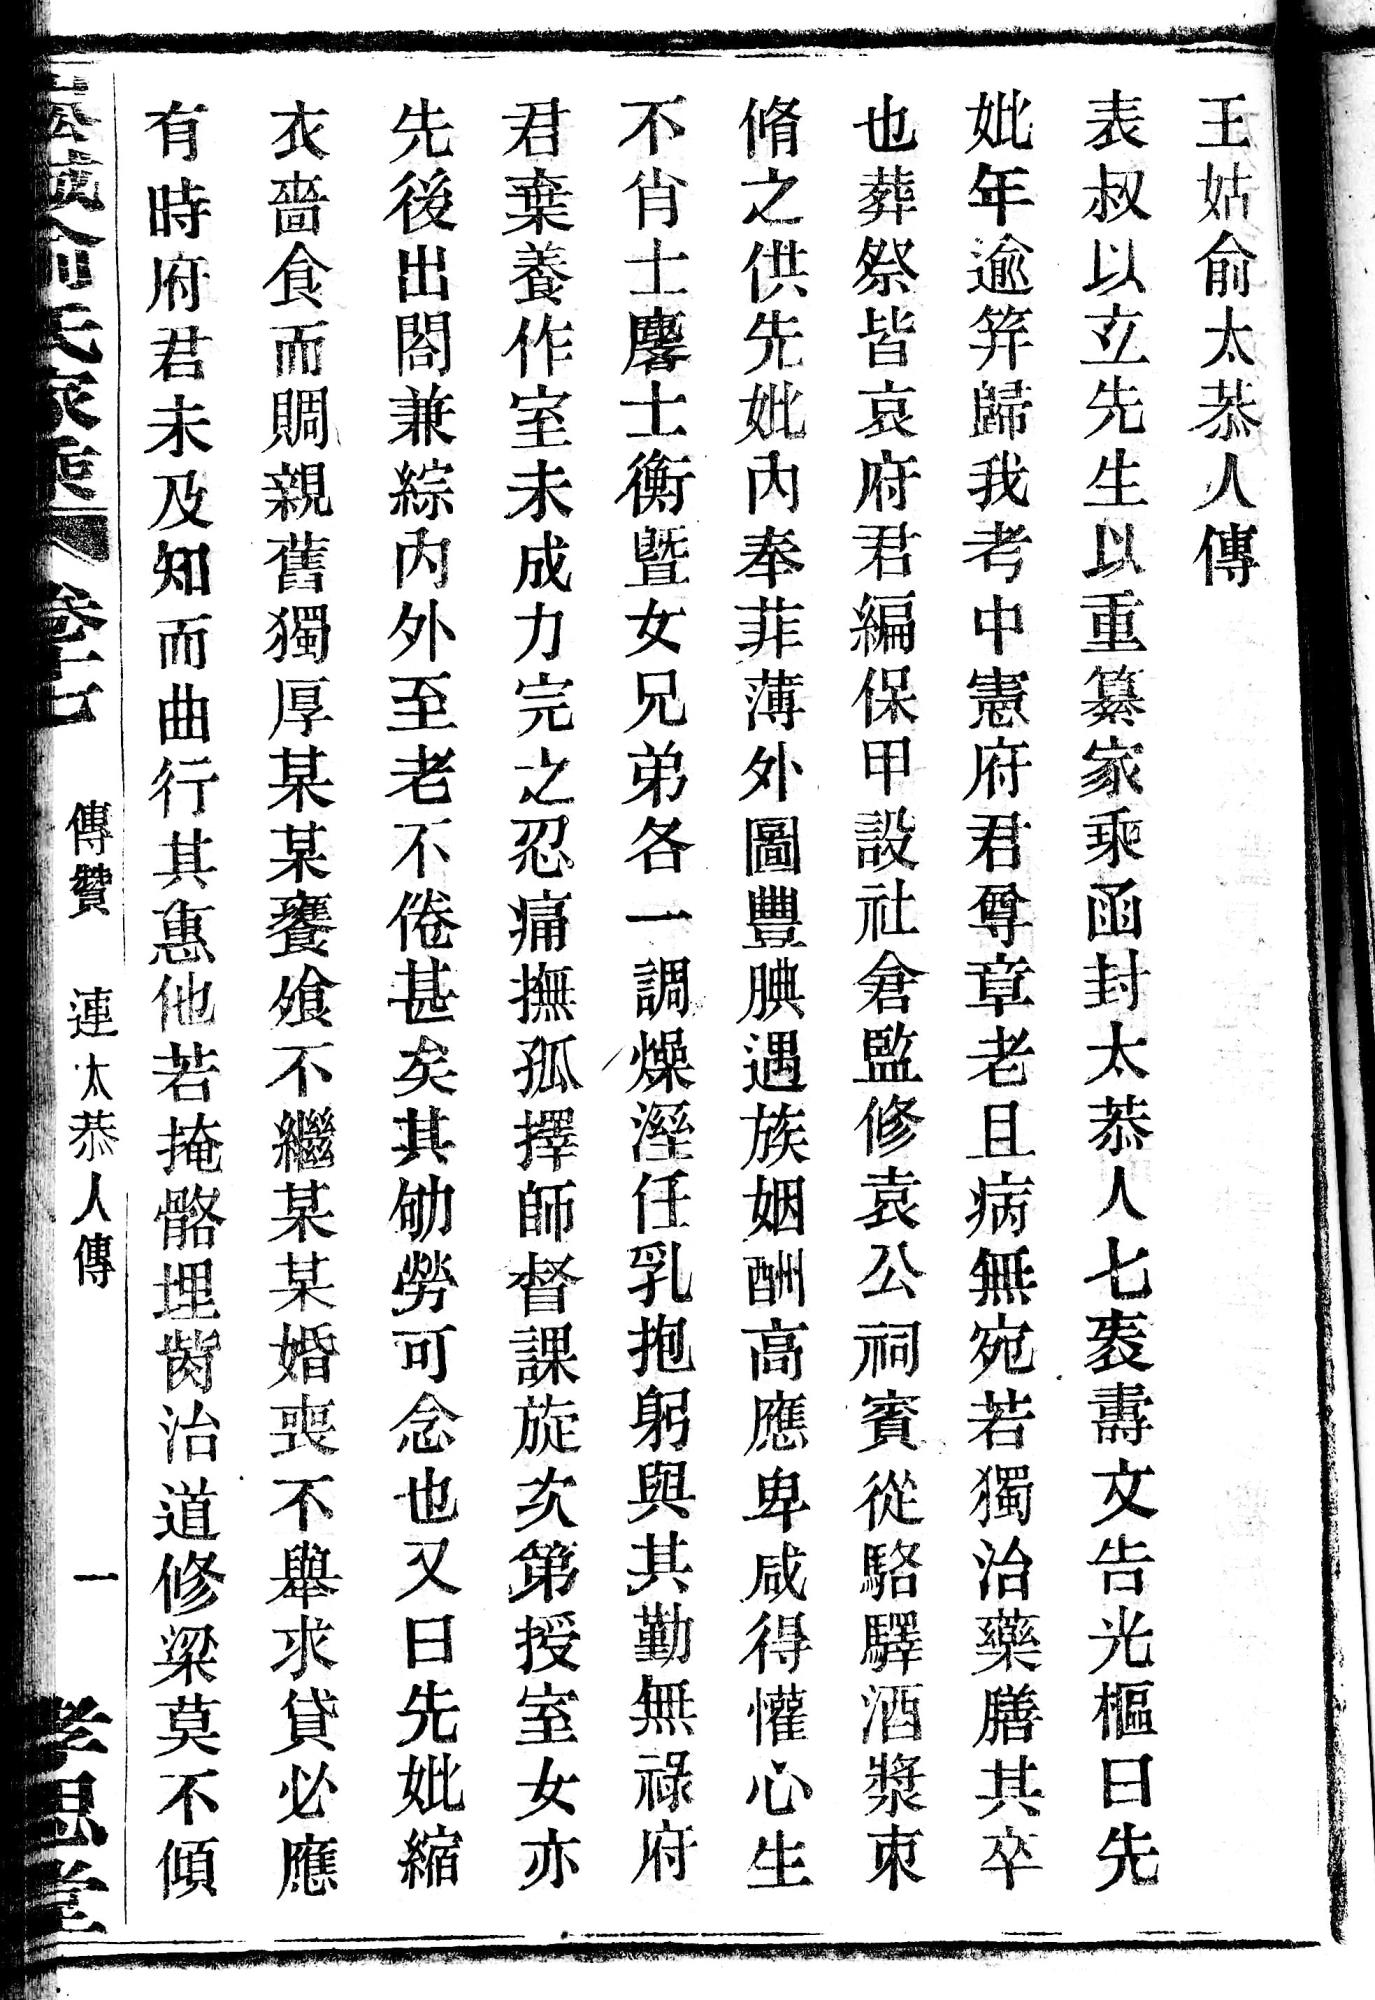 王姑俞太恭人傳
表叔以立先生以重纂家乘函封太恭人七袠壽文告光樞曰先
妣年逾筓歸我考中憲府君尊章老且病無宛若獨治藥膳其卒
也葬祭皆哀府君編保甲設社倉監修袁公祠賓從駱驛酒漿束
脩之供先妣内奉菲薄外圖豐腆遇族姻酬高應卑咸得懽心生
不肖士麐士衡暨女兄弟各一調燥溼任乳抱躬與其勤無祿府
君棄養作室未成力完之忍痛撫孤擇師督課旋次第授室女亦
先後出閤兼綜内外至老不倦甚矣其劬勞可念也又曰先妣縮
衣嗇食而賙親舊獨厚某某饔飧不繼某某婚喪不舉求貸必應
有時府君未及知而曲行其惠他若掩骼埋胔治道修梁莫不傾
俞氏家乘 卷十七 傳贊 連太恭人傳 一 孝思堂